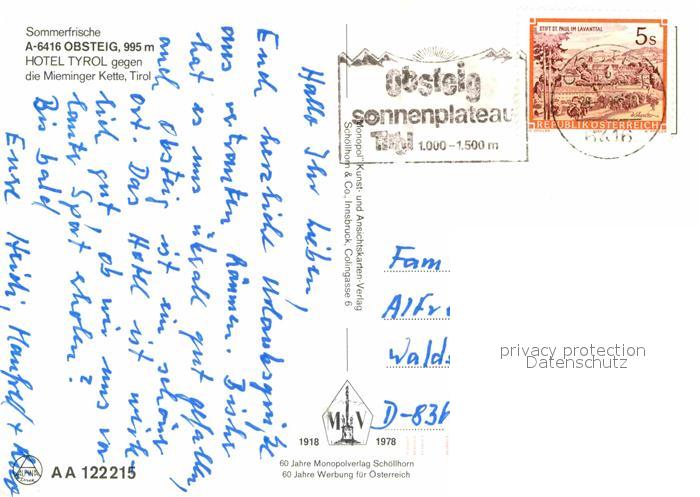 Sommerfrische
A-6416 OBSTEIG, 995 m
HOTEL TYROL gegen
die Mieminger Kette, Tirol
Hallo Ihr Lieben,
Euch herzliche Urlaubsgrüße
aus vertrauten Räumen. Bisher
hat es uns überall gut gefallen,
auch Obsteig ist ein schöner
Ort. Das Hotel ist wirk-
lich gut, ob wir uns vor
lauter Sport erholen?
Bis bald
Eure Heidi, Manfred +
"Monopol" Kunst- und Ansichtskarten-Verlag
Schöllhorn & Co., Innsbruck, Colingasse 6
Obsteig
sonnenplateau
Tirol 1.000 – 1.500 m
STIFT ST. PAUL IM LAVANTTAL
5 S
REPUBLIK ÖSTERREICH
Fam
Alfr
Walds
D-836
privacy protection
Datenschutz
M V
1918 1978
60 Jahre Monopolverlag Schöllhorn
60 Jahre Werbung für Österreich
ALPINA
AA 122215